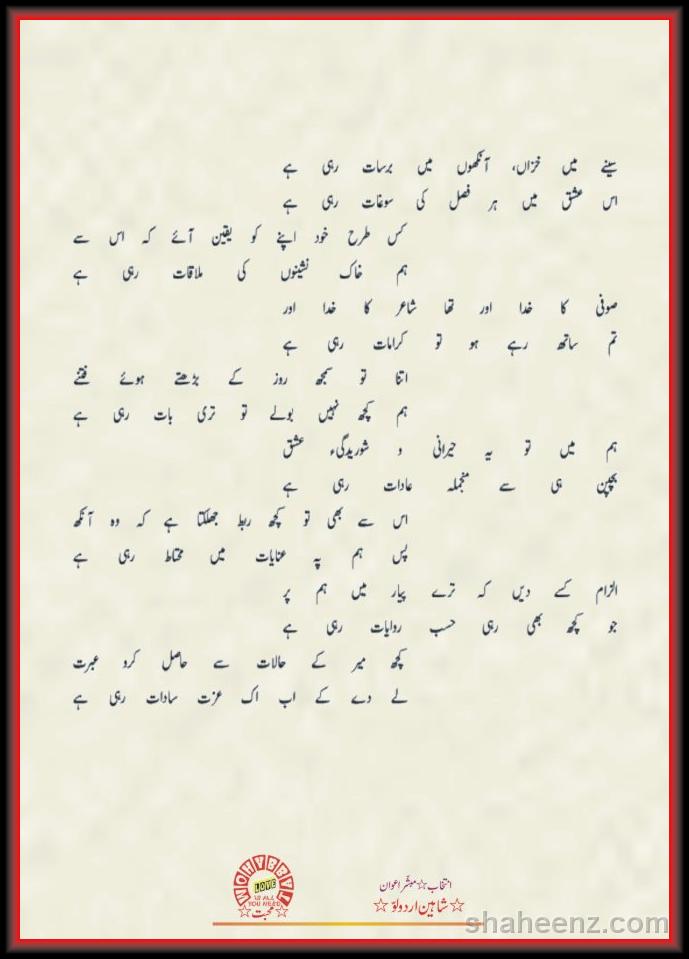 سینے میں خزاں، آنکھوں میں برسات رہی ہے
اس عشق میں ہر فصل کی سوغات رہی ہے
کس طرح خود اپنے کو یقین آئے کہ اس سے
ہم خاک نشینوں کی ملاقات رہی ہے
صوفی کا خدا اور تھا شاعر کا خدا اور
تم ساتھ رہے ہو تو کرامات رہی ہے
اتنا تو سمجھ روز کے بڑھتے ہوئے فتنے
ہم کچھ نہیں بولے تو تری بات رہی ہے
ہم میں تو یہ حیرانی و شوریدگیء عشق
بچپن ہی سے منجملہ عادات رہی ہے
اس سے بھی تو کچھ ربط جھلکتا ہے کہ وہ آنکھ
پس ہم پہ عنایات میں محتاط رہی ہے
الزام کسے دیں کہ ترے پیار میں ہم پر
جو کچھ بھی رہی حسب روایات رہی ہے
کچھ میر کے حالات سے حاصل کرو عبرت
لے دے کے اب اک عزت سادات رہی ہے
انتخاب☆مبشر اعوان
☆شاہین اردو لو☆
MOHYBBAT
LOVE
IS ALL
YOU NEED
☆محبت☆
shaheenz.com